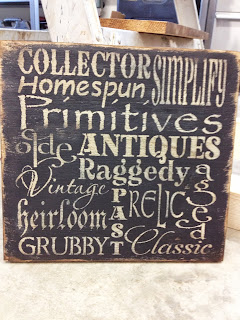 COLLECTOR
SIMPLIFY
Homespun
Primitives
olde ANTIQUES
Raggedy
Vintage
aged
PAST
RELIC
heirloom
GRUBBY
Classic